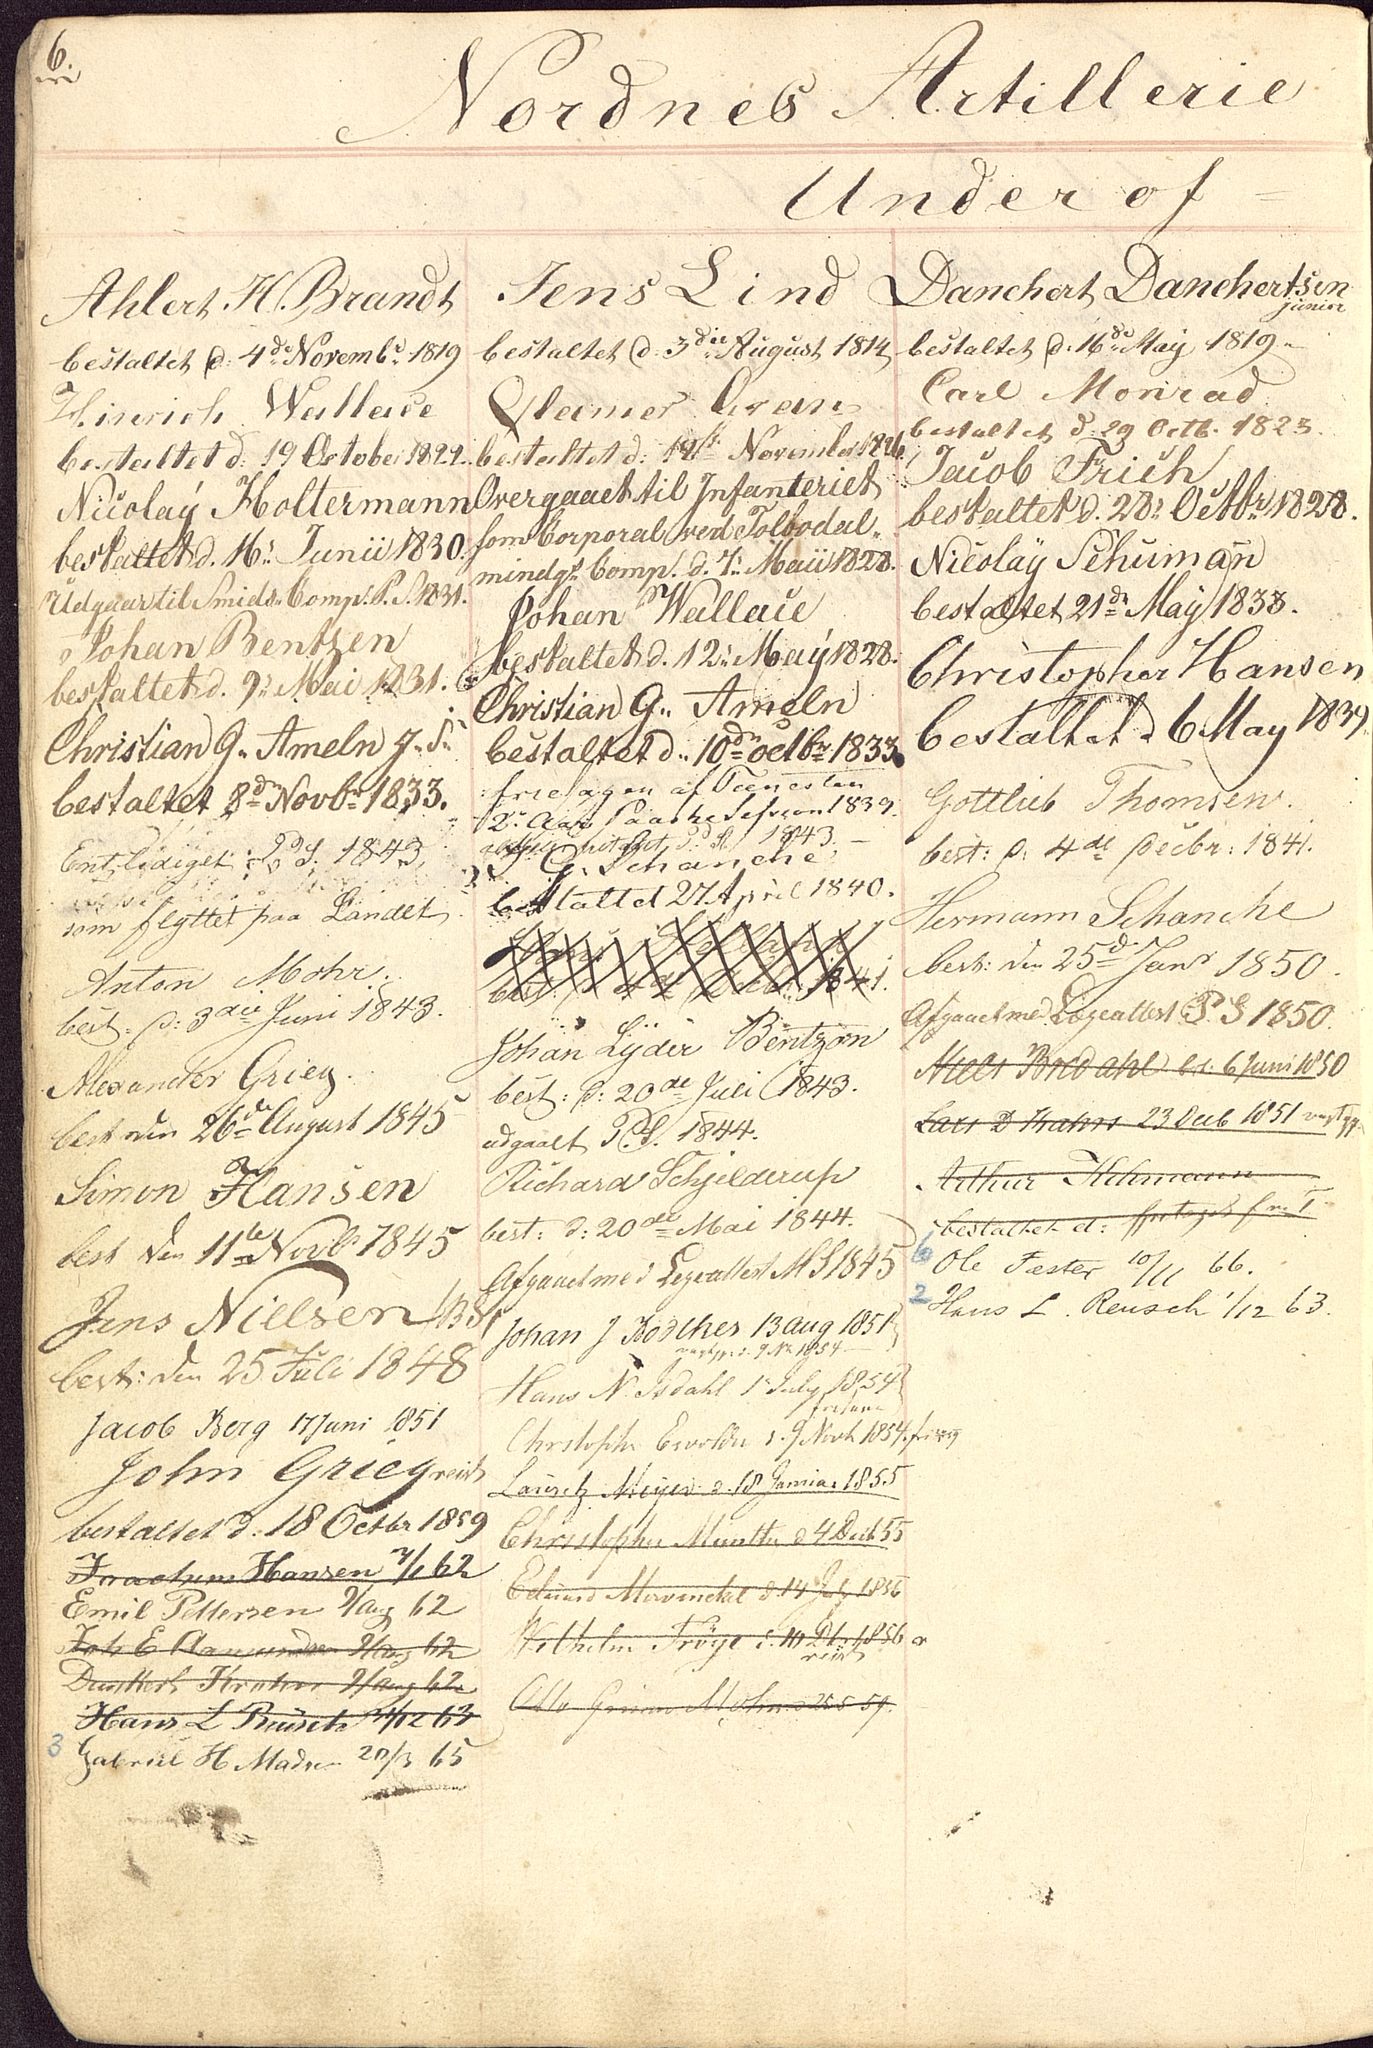 6.
Nordnes Artillerie
Under of =
Ahlert H. Brandt
bestaltet d: 4de Novembr 1819
Hinrich Wallace
bestaltet d: 19 October 1822.
Nicolaÿ Holtermann
bestaltet d. 16: Junii 1830.
Udgaar til Smids Comp. P. S. 1831.
Johan Bentzen
bestaltet d. 9: Mai 1831.
Christian G. Ameln
bestaltet 8de Novbr 1833.
Entlediget 1843,
som flyttet paa Landet
Anton Mohr.
best: d: 3die Juni 1843.
Alexander Grieg.
best den 26de August 1845
Simon Hansen
best den 11te Novbr 1845
Jens Nielsen
best: den 25 Juli 1848
Jacob Berg 17 Juni 1851
John Grieg reist
bestaltet d: 18 Octbr 1859
Joachum Hansen 7/1 62
Emil Pettersen 9/aug 62
Joh E Aamundsen 9/aug 62
Dankert Krohn 9/aug 62
Hans L Reusch 1/12 63
3 Gabriel H Madsen 20/3 65
Jens Lind
bestaltet d: 3die August 1814
Gran
bestaltet d: 14de November 1826
Overgaaet til Infanteriet
som Corporal ved Tolbodal-
mindgs Comp. d. 7: Maii 1828.
Johan Wallace
bestaltet d. 12: Maÿ 1828.
Christian G. Ameln
bestaltet d. 10de octbr 1833.
fritagen af Tienesten
2: Aar Paa Session 1839.
1843.
G. Schanche
bestaltet 27 April 1840.
best: 1841.
Johan Lÿder Bentzon
best: d: 20de Juli 1843.
udgaaet P.S. 1844.
Richard Schjelderup
best: d: 20de Mai 1844.
Afgaaet med Legeattest M S 1845
Johan J Bödtker 13 aug 1851
9 1854
Hans N. Isdahl 1 July 1854
Christopher d. 9 Novb 1854.
Lauritz Meyer d. 18 Januar 1855
Christopher Munthe d 4 Decb 55
Eduard d 14 July 1856
Wilhelm Tröye d. 10 1856
reist
Otto Mohn 25 5 59.
Danchert Danchertsen
junior
bestaltet d. 16de Maÿ 1819.
Carl Monrad
bestaltet d. 29 Octb. 1823.
Jacob Frich
bestaltet d. 28: Octbr 1828.
Nicolaÿ Schumann
bestaltet 21de Maÿ 1838.
Christopher Hansen
bestaltet d 6 May 1839
Gottlieb Thomsen.
best: d: 4de Decbr: 1841.
Hermann Schanche
best: den 25de Janr 1850.
Afgaaet med Legeattest P. S 1850.
Niels Bredahl d: 6 Juni 1850
Lars D Krahn 23 Decb 1851
Arthur
bestaltet d:
6 Ole Fæster 10/11 66.
2 Hans L. Reusch 1/12 63.